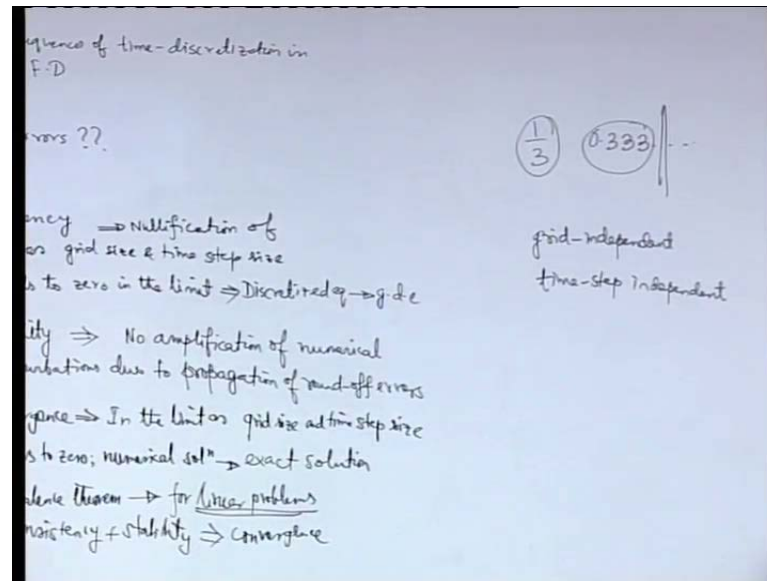 quence of time-discretization in
F.D
rors ??
ency ⇒ Nullification of
as grid size & time step size
s to zero in the limit ⇒ Discretized eq → g.d.e
ity ⇒ No amplification of numerical
urbations due to propagation of round-off errors
gence ⇒ In the limit as grid size ad time step size
s to zero; numerical solⁿ → exact solution
alence theorem → for linear problems
nsistency + stability ⇒ convergence
1/3 0.333 ...
grid-independent
time-step independent